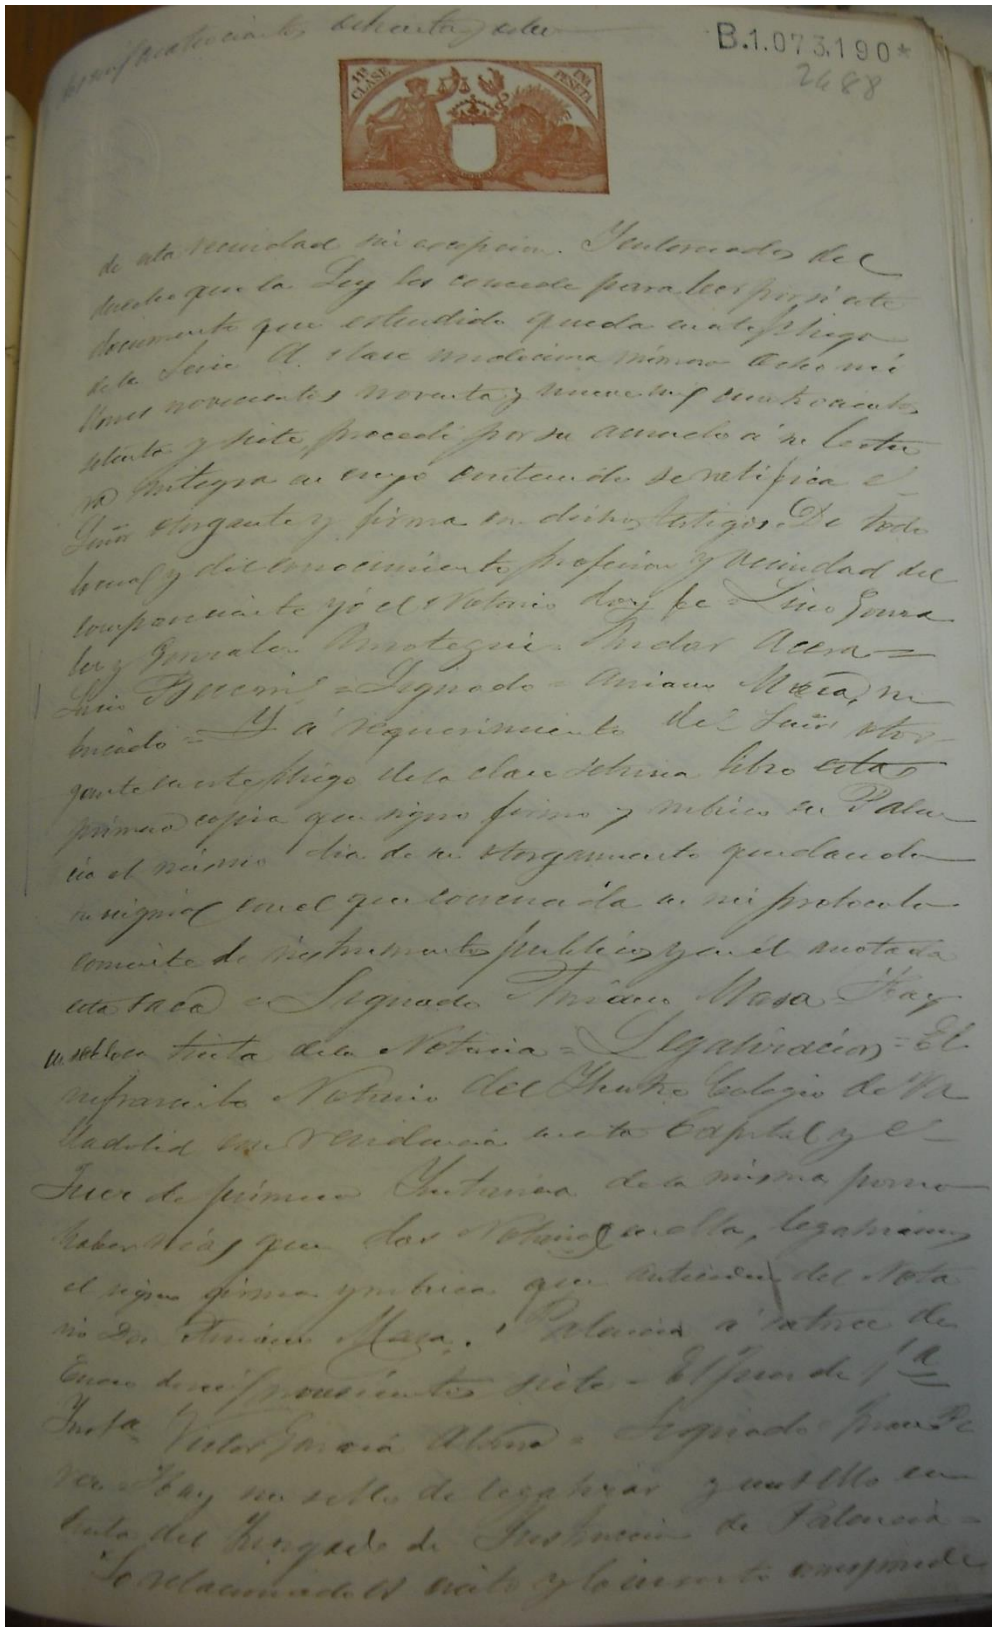 dos mil cuatrocientos ochenta y ocho
B.1.073.190*
2488
11ª CLASE UNA PESETA
de esta vecindad sin excepcion. Y enterados del
derecho que la Ley les concede para leer por sí este
documento que estendido queda en este pliego
de la Serie A. clase undecima número ocho mi
llones novecientos noventa y nueve mil cuatrocientos
setenta y siete, procedí por su acuerdo á su lectu
ra íntegra en cuyo contenido se ratifica el
Señor otorgante y firma con dichos testigos. De todo
lo cual y del conocimiento, profesion y vecindad del
compareciente yó el Notario doy fe = Lino Gonza
lez y Gonzalez Amotegui = Acera =
Lucio = Signado = Aniano Masa, ru
bricado = Y á requerimiento del Señor otor
gante en este pliego de la clase setima libro esta
primera copia que signo firmo y rubrico en Palen
cia el mismo dia de su otorgamiento quedando
su original con el que concuerda en mi protocolo
corriente de instrumentos publicos y en él anotada
esta saca = Signado Aniano Masa = Hay
un sello en tinta de la Notaria = Legalizacion = El
infrascrito Notario del Ilustre Colegio de Va
lladolid con residencia en esta Capital y el
Juez de primera Instancia de la misma por no
haber más que dos Notarios en ella, legalizamos
el signo firma y rubrica que anteceden del Nota
rio Don Aniano Masa. Palencia á catorce de
Enero de mil novecientos siete = El Juez de 1ª
Insta Victor Garcia Alonso = Signado
Hay un sello de legalizar y un sello en
tinta del Juzgado de Instruccion de Palencia =
Lo relacionado es cierto y lo inserto corresponde